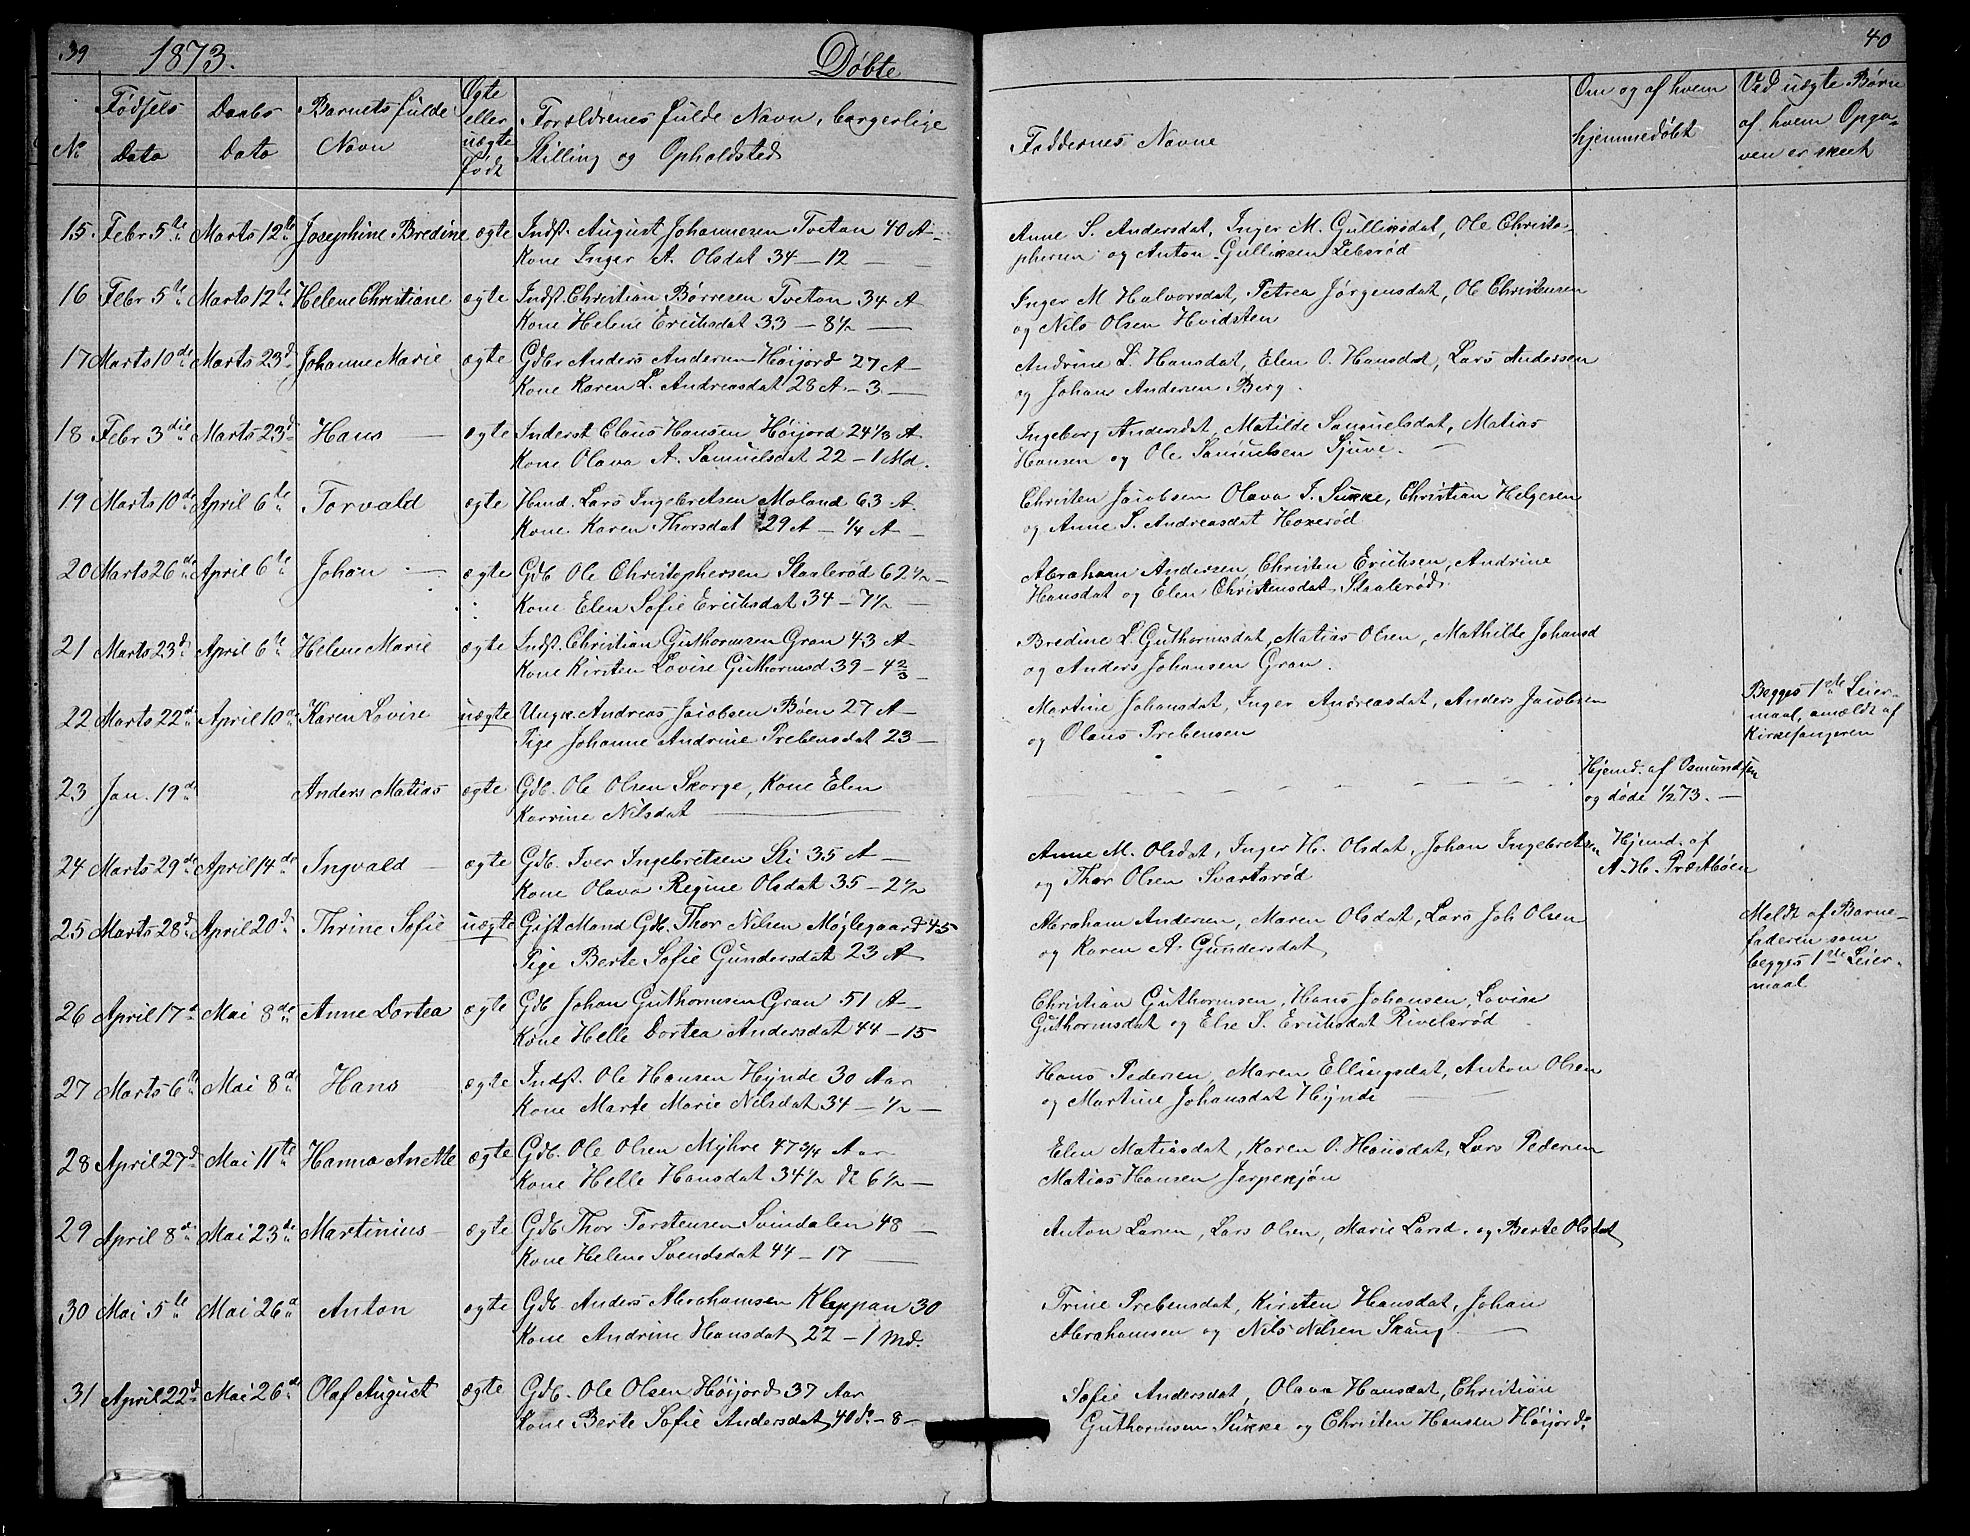 39 1873. Døbte 40
No Fødsels Dato Daabs Dato Barnets fulde Navn Ægte eller uægte født Forældrenes fulde Navn, borgerlige Stilling og Opholdsted Faddernes Navne Om og af hvem hjemmedøbt Ved uægte Børn af hvem Opgaven er skeet
15. Febr 5te Marts 12te Josephine Bredine ægte Indst. August Johannesen Tveten 40 A - Anne S. Andersdat, Inger M. Gulliksdat, Ole Christo-
Kone Inger A. Olsdat 34 - 12 - phersen og Anton Gulliksen Lebsrød
16 Febr 5te Marts 12te Helene Christiane ægte Indst. Christian Børresen Tveton 34 A Inger M Halvorsdat, Petrea Jørgensdat, Ole Christensen
Kone Helene Eriksdat 33 - 8 1/2 - og Nils Olsen Hvidsten
17 Marts 10de Marts 23d Johanne Marie ægte Gdbr Anders Andersen Høijord 27 A - Andrine L. Hansdat, Elen O. Hansdat, Lars Anderssen
Kone Karen L. Andreasdat 28 A - 3 - og Johan Andersen Berg.
18 Febr 3die Marts 23d Hans - ægte Inderst Claus Hansen Høijord 24 1/3 A Ingeborg Andersdat, Matilde Samuelsdat, Matias
Kone Olava A. Samuelsdat 22 - 1 Md. Hansen og Ole Samuelsen Sjuve. -
19 Marts 10de April 6te Torvald ægte Hmd. Lars Ingebretsen Moland 63 A. Christen Jacobsen Olava J. Sukke, Christian Helgesen
Kone Karen Thorsdat 29 A - 1/4 A - og Anne S. Andreasdat Hoxerød
20 Marts 26de April 6te Johan - ægte Gdb Ole Christophersen Staalerød 62 1/2 - Abraham Andersen, Christen Eriksen, Andrine
Kone Elen Sofie Eriksdat 34 - 7 1/2 - Hansdat og Elen Christensdat Staalerød
21 Marts 23d April 6te Helene Marie ægte Indst. Christian Guthormsen Gran 43 A - Bredine L. Guthormsdat, Matias Olsen, Mathilde Johansd
Kone Kirsten Lovise Guthormsd 39 - 4 2/3 og Anders Johansen Gran.
22 Marts 22d April 10de Karen Lovise uægte Ungk. Andreas Jacobsen Bøen 27 A - Martine Johansdat, Inger Andreasdat, Anders Jacobsen Begges 1ste Leier-
Pige Johanne Andrine Prebensdat 23 - og Olaus Prebensen maal, anmeldt af
Kirkesangeren
23 Jan. 19de Anders Matias ægte Gdb. Ole Olsen Skorge, Kone Elen Hjemd. af Osmundsen
Karrine Nilsdat - og døde 1/2 73. -
24 Marts 29de April 14de Ingvald - ægte Gdb. Iver Ingebretsen Sti 35 A - Anne M. Olsdat, Inger H. Olsdat, Johan Ingebretsen Hjemd. af
Kone Olava Regine Olsdat 35 - 2 1/2 og Thor Olsen Svartsrød A. H. Præstbøen
25 Marts 28d April 20d Thrine Sofie uægte Gift Mand Gdb. Thor Nilsen Møglegaard 45 Abraham Andersen, Maren Olsdat, Lars Joh. Olsen Meldt af Barne-
Pige Berte Sofie Gundersdat 23 A og Karen A. Gundersdat faderen som
begges 1ste Leier-
maal
26 April 17d Mai 8de Anne Dortea ægte Gdb Johan Guthormsen Gran 51 A - Christian Guthormsen, Hans Johansen, Lovise
Kone Helle Dortea Andersdat 44 - 15 Guthormsdat og Else S. Eriksdat Rivelsrød
27 Marts 6te Mai 8de Hans ægte Indst. Ole Hansen Hynde 30 Aar Hans Pedersen, Maren Ellingsdat, Anton Olsen
Kone Marte Marie Nilsdat 34 - 1/2 - og Martine Johansdat Hynde -
28 April 27d Mai 11te Hanna Anette ægte Gdb. Ole Olsen Myhre 47 3/4 Aar Elen Matiasdat, Karen O. Hansdat, Lars Pedersen
Kone Helle Hansdat 34 1/2 d 6 1/2 - Matias Hansen Jerpeskjøn
29 April 8de Mai 23de Martinius - ægte Gdb Thor Torstensen Svindalen 48 - Anton Larsen, Lars Olsen, Marie Larsd. og Berte Olsdat
Kone Helene Svendsdat 44 - 17 -
30 Mai 5te Mai 26d Anton ægte Gdb. Anders Abrahamsen Kleppan 30 Trine Prebensdat, Kirsten Hansdat, Johan
Kone Andrine Hansdat 22 - 1 Md. Abrahamsen og Nils Nilsen Skaug. -
31 April 22d Mai 26de Olaf August ægte Gdb. Ole Olsen Høijord 37 Aar Sofie Andersdat, Olava Hansdat, Christian
Kone Berte Sofie Andersdat 40 do - 8 - Guthormsen Sukke og Christen Hansen Høijord.